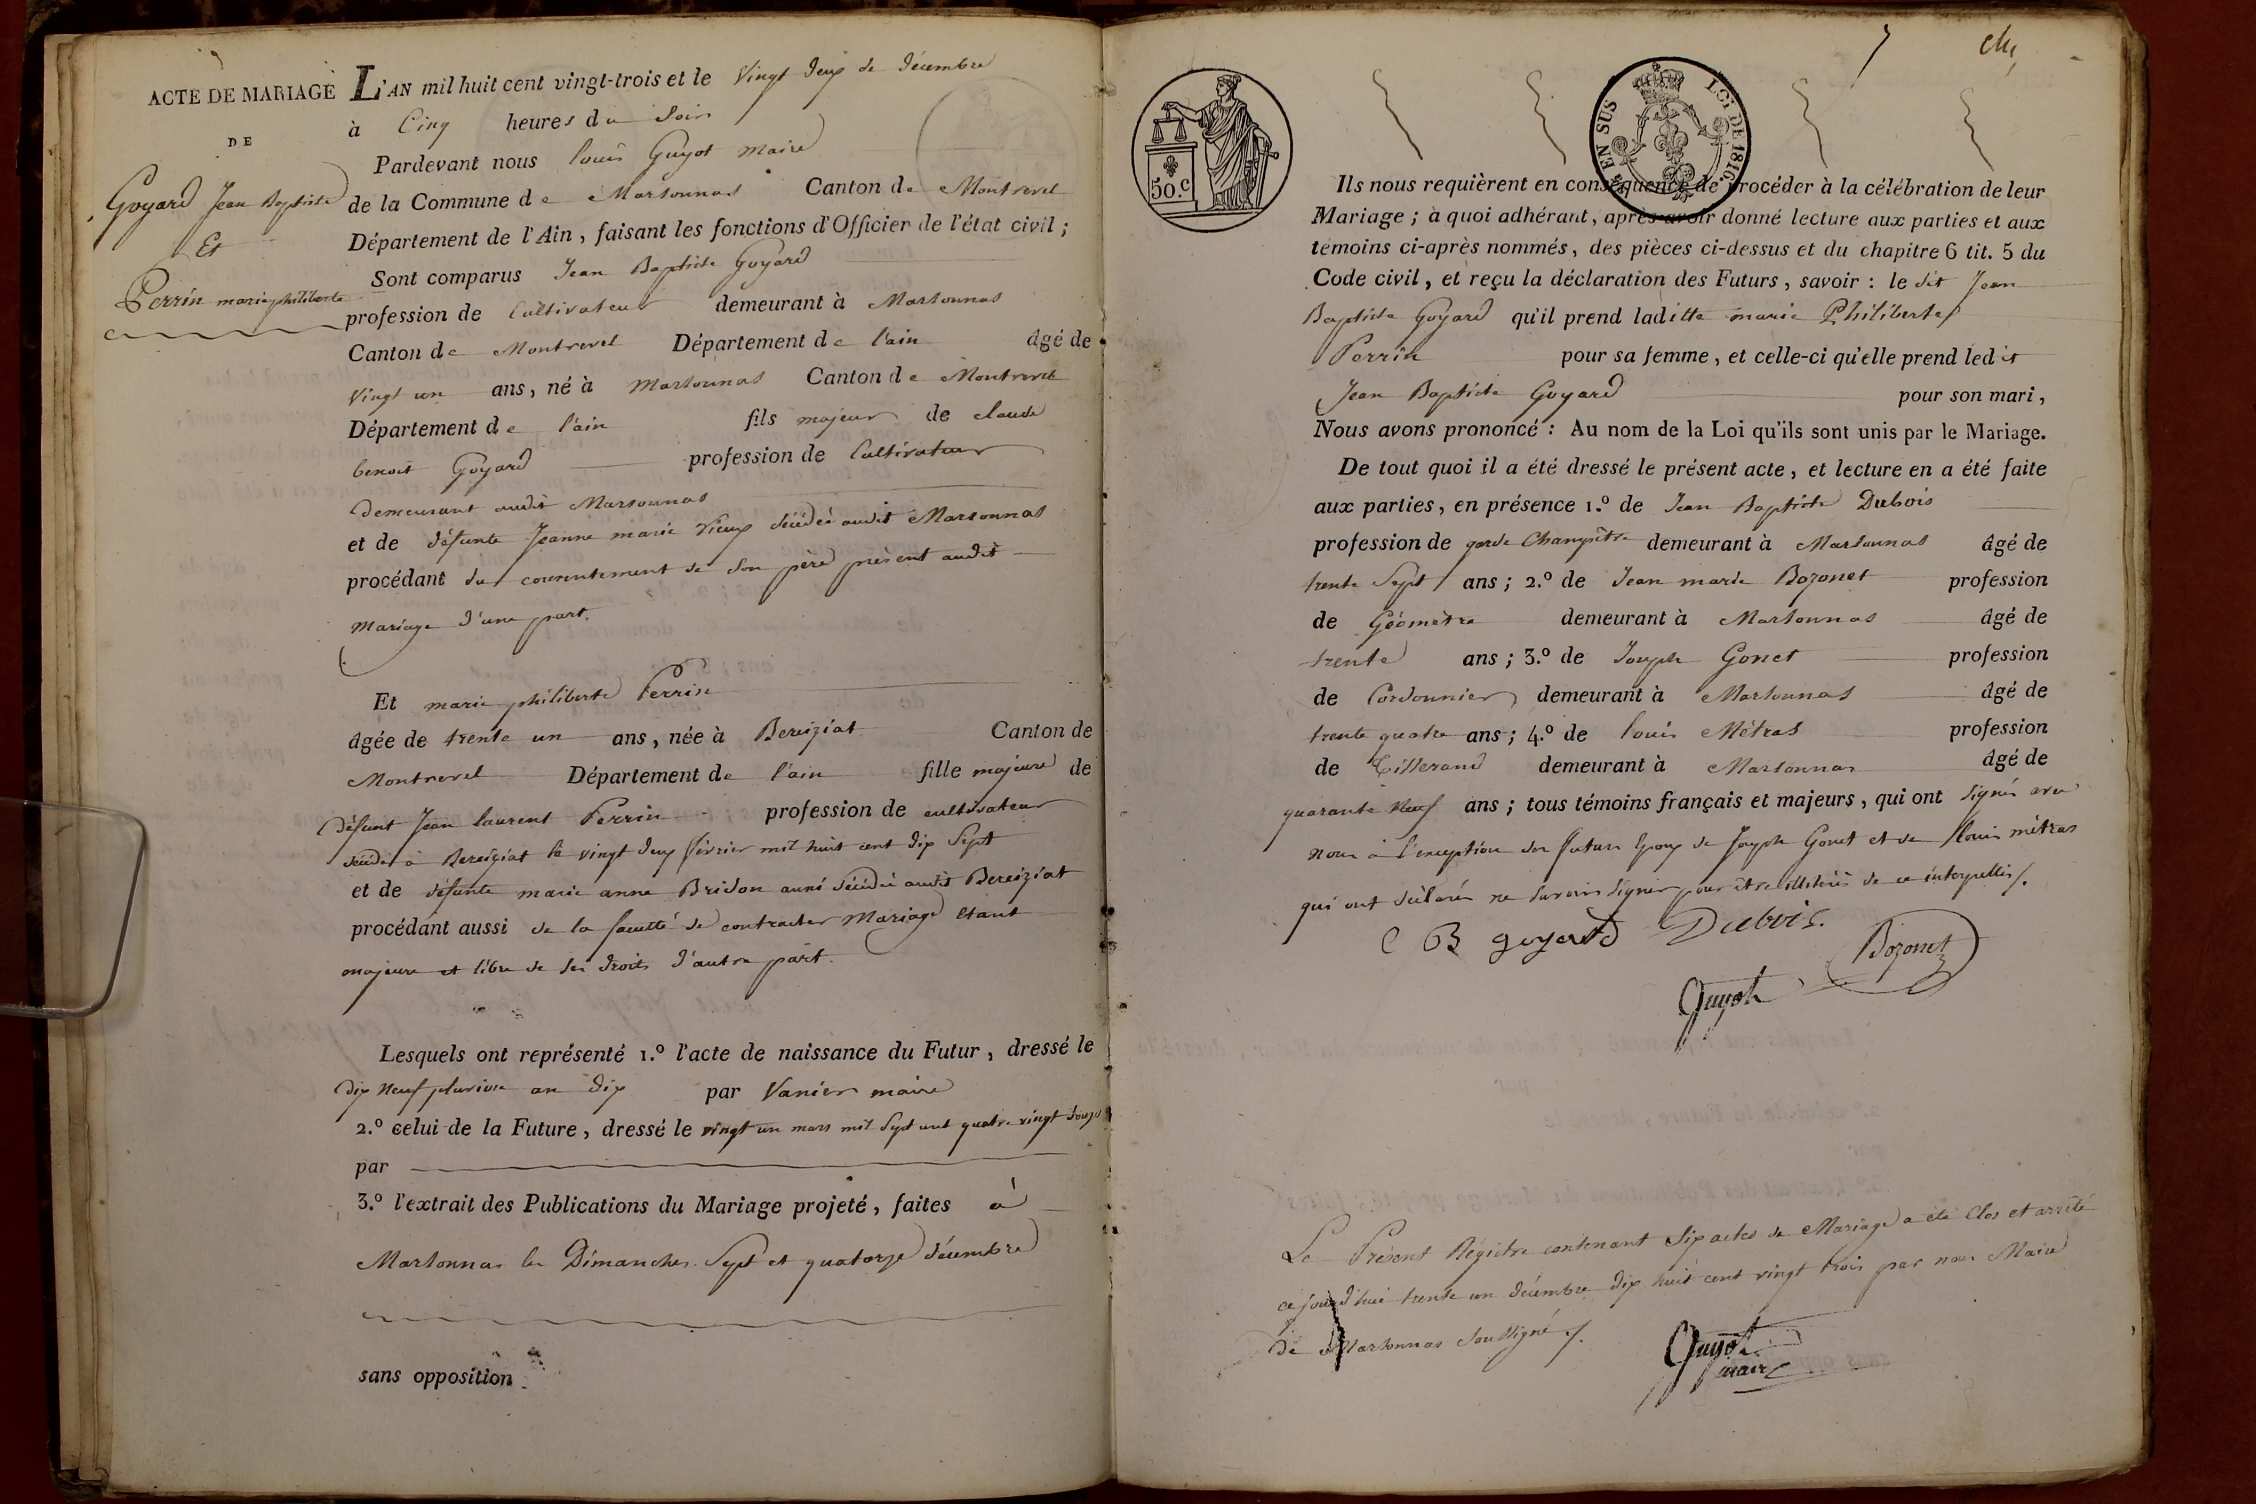 ACTE DE MARIAGE
DE
Goyard Jean Baptiste
Et
Perrin marie philiberte
L'AN mil huit cent vingt-trois et le vingt deux de décembre
à Cinq heures du Soir
Pardevant nous louis Guyot maire
de la Commune de Marsonnas Canton de Montrevel
Département de l'Ain, faisant les fonctions d'Officier de l'état civil ;
Sont comparus Jean Baptiste Goyard
profession de Cultivateur demeurant à Marsonnas
Canton de Montrevel Département de l'ain âgé de
vingt un ans, né à Marsonnas Canton de Montrevel
Département de l'ain fils majeur de claude
benoit Goyard profession de Cultivateur
demeurant audit Marsonnas
et de défunte Jeanne marie Vieux décédée audit Marsonnas
procédant du consentement de son père présent audit
mariage d'une part.
Et marie philiberte Perrin
âgée de trente un ans, née à Bereiziat Canton de
Montrevel Département de l'ain fille majeure de
défunt Jean laurent Perrin profession de cultivateur
décédé à Bereiziat le vingt deux février mil huit cent dix Sept
et de défunte marie anne Bridon aussi décédée audit Bereiziat
procédant aussi de la faculté de contracter Mariage étant
majeure et libre de ses droits d'autre part.
Lesquels ont représenté 1.º l'acte de naissance du Futur, dressé le
dix neuf pluviose an dix par Vanier maire
2.º celui de la Future, dressé le vingt un mars mil Sept cent quatre vingt douze
par
3.º l'extrait des Publications du Mariage projeté, faites à
Marsonnas les Dimanches Sept et quatorze décembre
sans opposition
7
50.c
EN SUS
LOI DE 1816.
Ils nous requièrent en conséquence de procéder à la célébration de leur
Mariage ; à quoi adhérant, après avoir donné lecture aux parties et aux
témoins ci-après nommés, des pièces ci-dessus et du chapitre 6 tit. 5 du
Code civil, et reçu la déclaration des Futurs, savoir : le dit Jean
Baptiste Goyard qu'il prend laditte marie Philiberte
Perrin pour sa femme, et celle-ci qu'elle prend ledit
Jean Baptiste Goyard pour son mari,
Nous avons prononcé : Au nom de la Loi qu'ils sont unis par le Mariage.
De tout quoi il a été dressé le présent acte, et lecture en a été faite
aux parties, en présence 1.º de Jean Baptiste Dubois
profession de garde Champêtre demeurant à Marsonnas âgé de
trente Sept ans ; 2.º de Jean marie Bozonet profession
de Géomètre demeurant à Marsonnas âgé de
trente ans ; 3.º de Joseph Gonet profession
de Cordonnier demeurant à Marsonnas âgé de
trente quatre ans ; 4.º de louis Métras profession
de Tisserand demeurant à Marsonnas âgé de
quarante Neuf ans ; tous témoins français et majeurs, qui ont signés avec
nous à l'exception des futurs Epoux de Joseph Gonet et de louis métras
qui ont déclarés ne savoir signer pour être illitérés de ce interpellés.
C B goyard Dubois.
Bozonet
Guyot
Le Présent Régistre contenant Six actes de Mariage a été Clos et arrêté
ce jourd'hui trente un décembre dix huit cent vingt trois par nous Maire
de Marsonnas Soussigné.
Guyot
maire